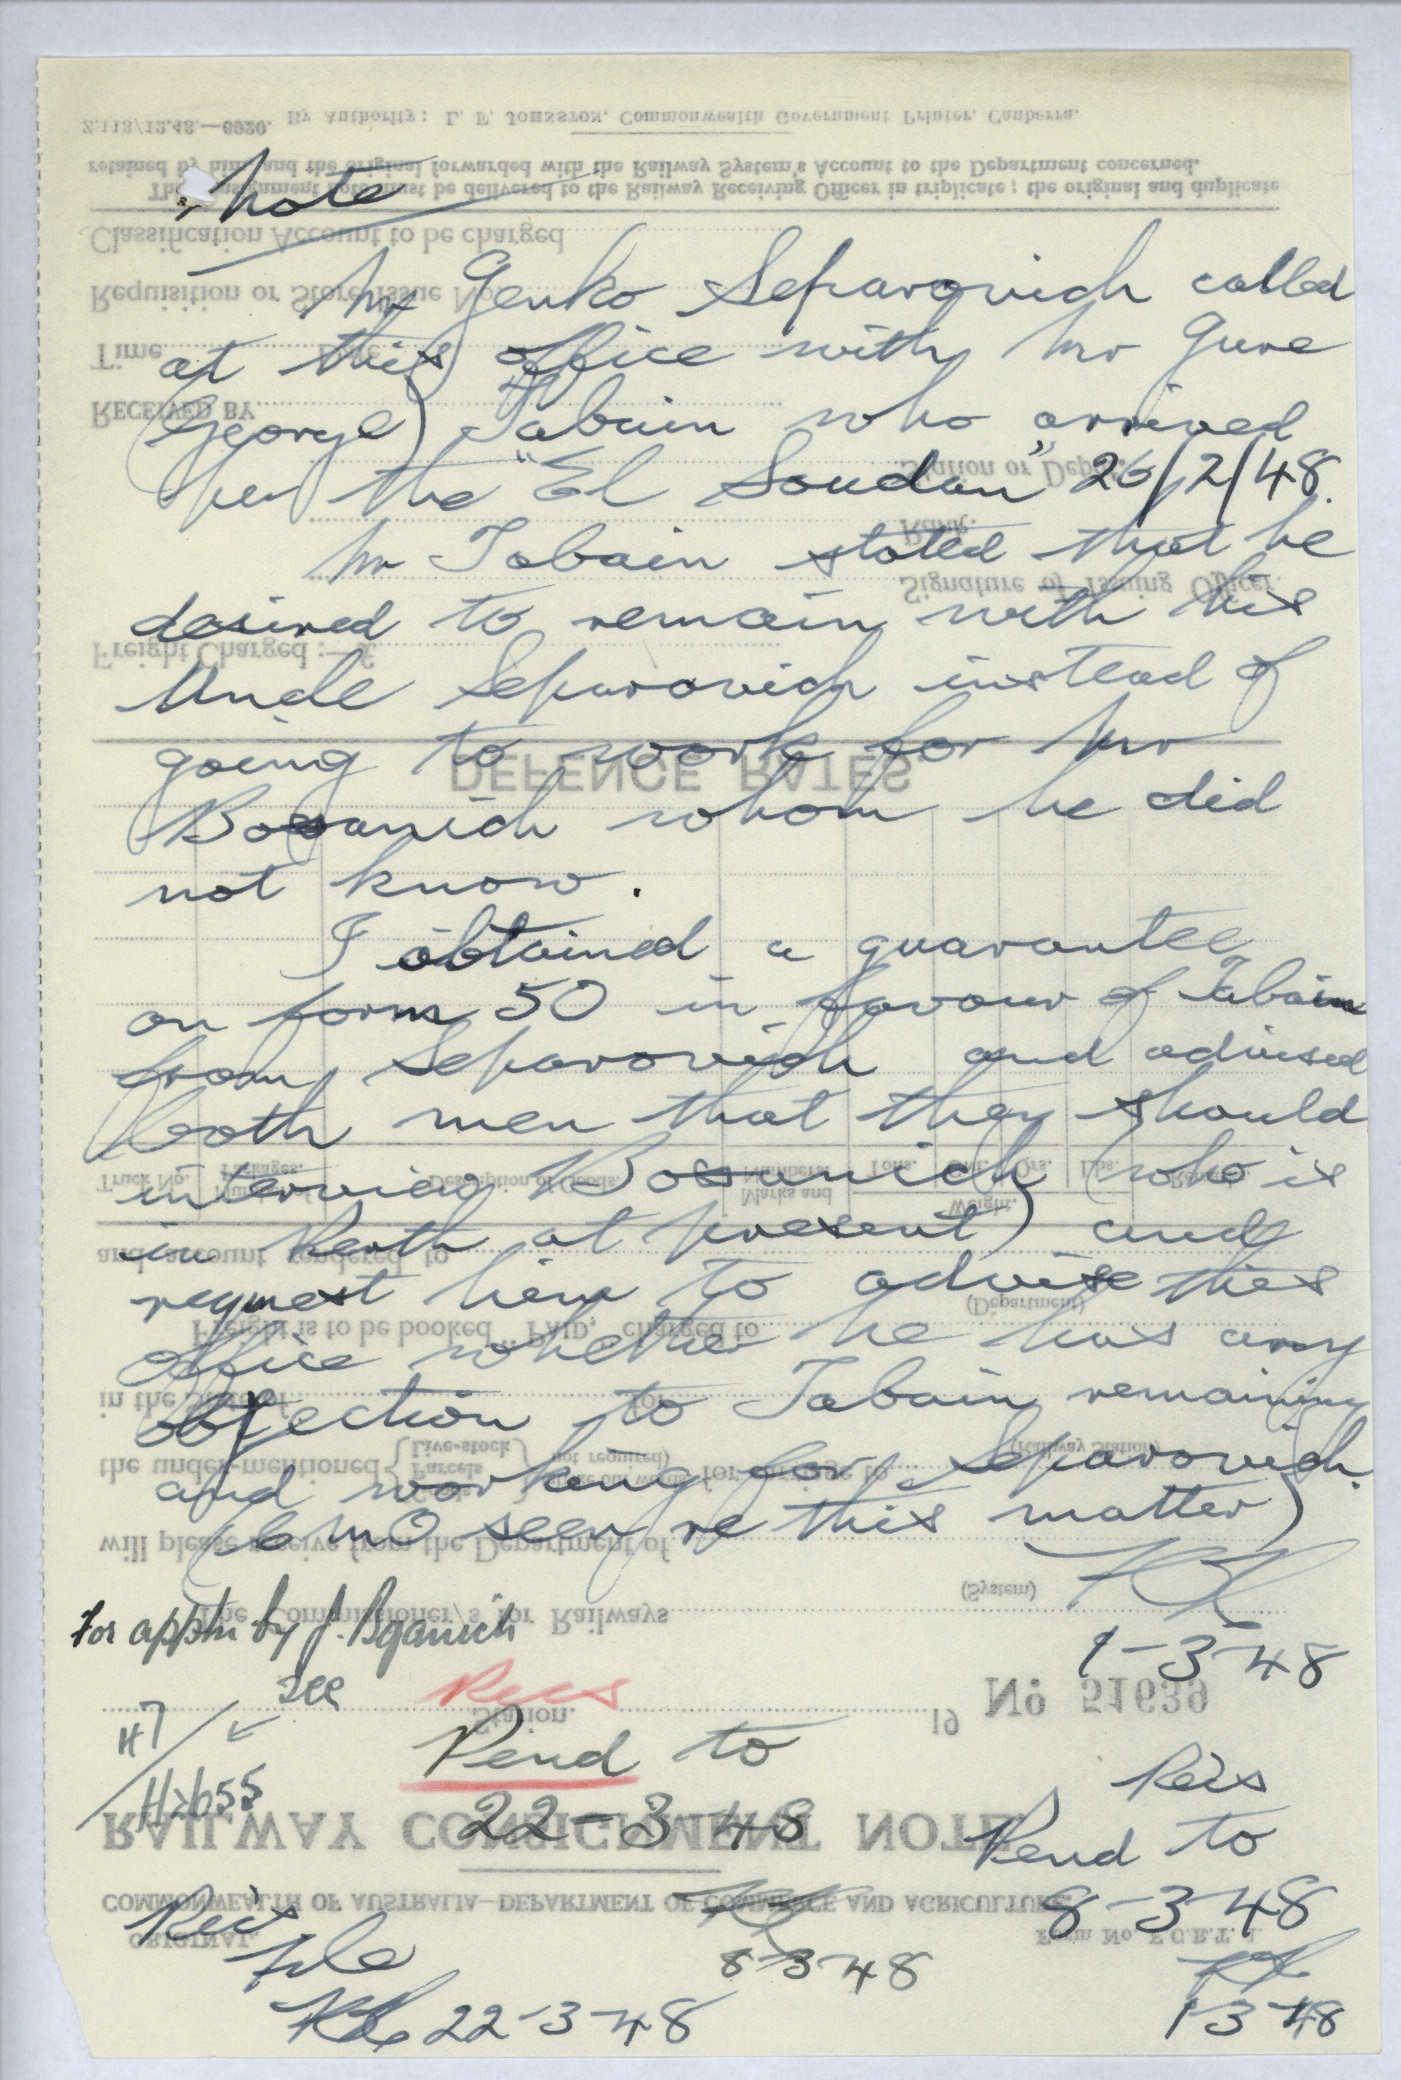 Note
Mr Genko Separovich called
at this office with Mr Jure
(George) Tabain who arrived
per the "El Soudan" 26/2/48.
Mr Tabain stated that he
desired to remain with his
Uncle Separovich instead of
going to work for Mr
Bosanich whom he did
not know.
I obtained a guarantee
on form 50 in favour of Tabain
from Separovich and advised
both men that they should
interview Bosanich (who is
in Perth at present) and
request him to advise this
office whether he has any
objection to Tabain remaining
and working for Separovich.
(CMO seen re this matter)
1-3-48
For appln by J. Bganich
see
H7/
H2655
Recs
Pend to
22-3-48
8-3-48
Recs
Pend to
8-3-48
1-3-48
Recs
file
22-3-48
ORIGINAL.
Form No. F.O.R.T. 1.
COMMONWEALTH OF AUSTRALIA—DEPARTMENT OF COMMERCE AND AGRICULTURE.
RAILWAY CONSIGNMENT NOTE
No 51639
Station. 19
The Commissioner/s for Railways
(System)
will please receive from the Department of
the under-mentioned {Live-stock Parcels} not required) for carriage to
(Railway Station)
in the State of for
Freight is to be booked "PAID," charged to
(Department)
and account rendered to
Truck No. Packages. Description of Goods. Marks and Numbers. Weight. Tons. Cwt. Qrs. Lbs.
DEFENCE RATES
Freight Charged :—£
Signature of Issuing Officer.
Rank.
Station or Depot
RECEIVED BY
Time
Requisition or Store Issue No.
Classification Account to be charged
This consignment note must be delivered to the Railway Receiving Officer in triplicate; the original and duplicate
retained by him and the original forwarded with the Railway System's Account to the Department concerned.
By Authority: L. F. JOHNSTON, Commonwealth Government Printer, Canberra.